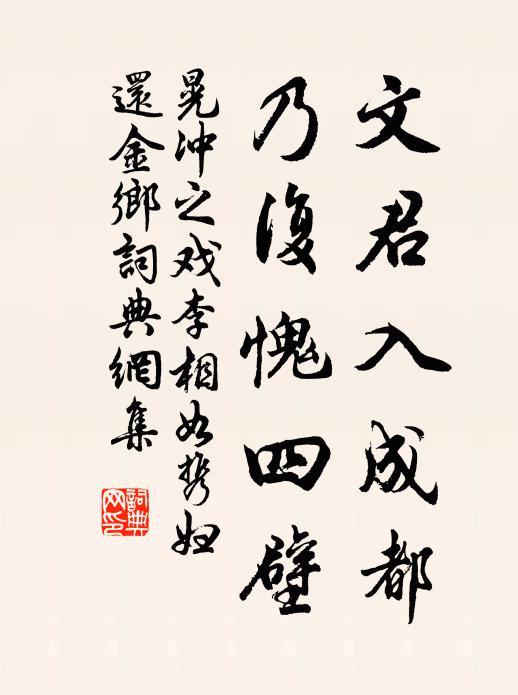 文君入成都
乃復愧四壁
晁冲之戏李相如携妇
還金鄉詞典網集
詞典
网印